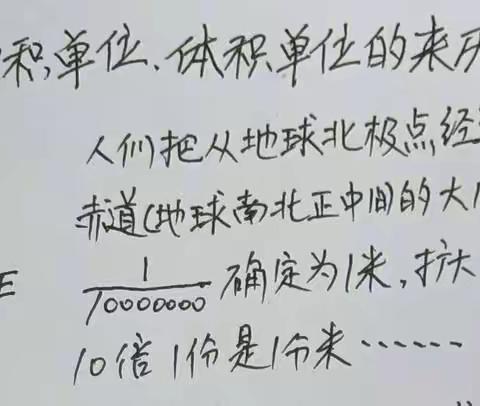 积单位、体积单位的来历
人们把从地球北极点经
赤道(地球南北正中间)的大
1
10000000 确定为1米,扩大
10倍1份是1分米……